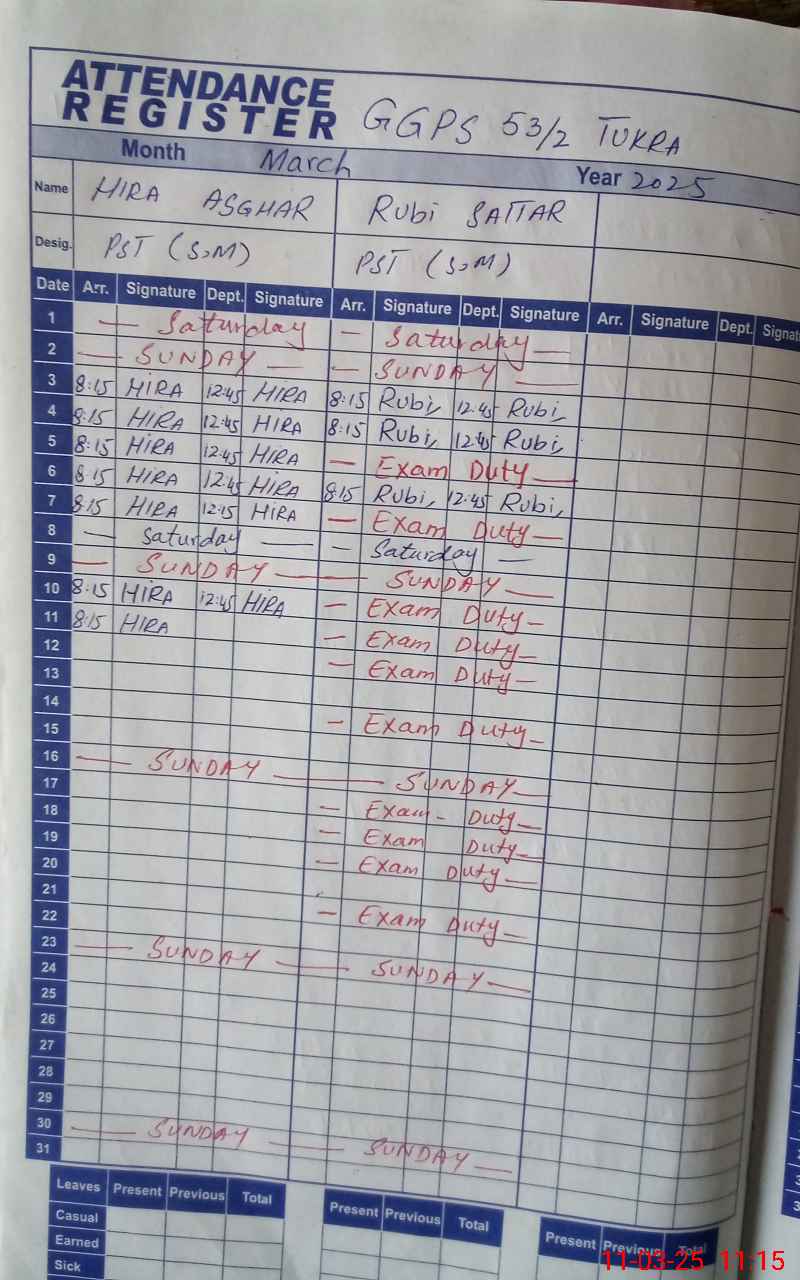 ATTENDANCE
REGISTER GGPS 53/2 TUKRA
Month March Year 2025
Name HIRA ASGHAR Rubi SATTAR
Desig. PST (S.M) PST (S.M)
Date Arr. Signature Dept. Signature Arr. Signature Dept. Signature Arr. Signature Dept. Signat
1 — Saturday — Saturday —
2 — SUNDAY — — SUNDAY —
3 8:15 HIRA 12:45 HIRA 8:15 Rubi 12:45 Rubi
4 8:15 HIRA 12:45 HIRA 8:15 Rubi 12:45 Rubi
5 8:15 HIRA 12:45 HIRA — Exam Duty —
6 8:15 HIRA 12:45 HIRA 8:15 Rubi 12:45 Rubi
7 8:15 HIRA 12:15 HIRA — Exam Duty —
8 — Saturday — — Saturday —
9 — SUNDAY — — SUNDAY —
10 8:15 HIRA 12:45 HIRA — Exam Duty —
11 8:15 HIRA — Exam Duty —
12 — Exam Duty —
13
14 — Exam Duty —
15
16 — SUNDAY — — SUNDAY —
17 — Exam - Duty —
18 — Exam Duty —
19 — Exam Duty —
20
21 — Exam Duty —
22
23 — SUNDAY — — SUNDAY —
24
25
26
27
28
29
30 — SUNDAY — — SUNDAY —
31
Leaves Present Previous Total Present Previous Total Present Previous Total
Casual
Earned
Sick
11-03-25 11:15